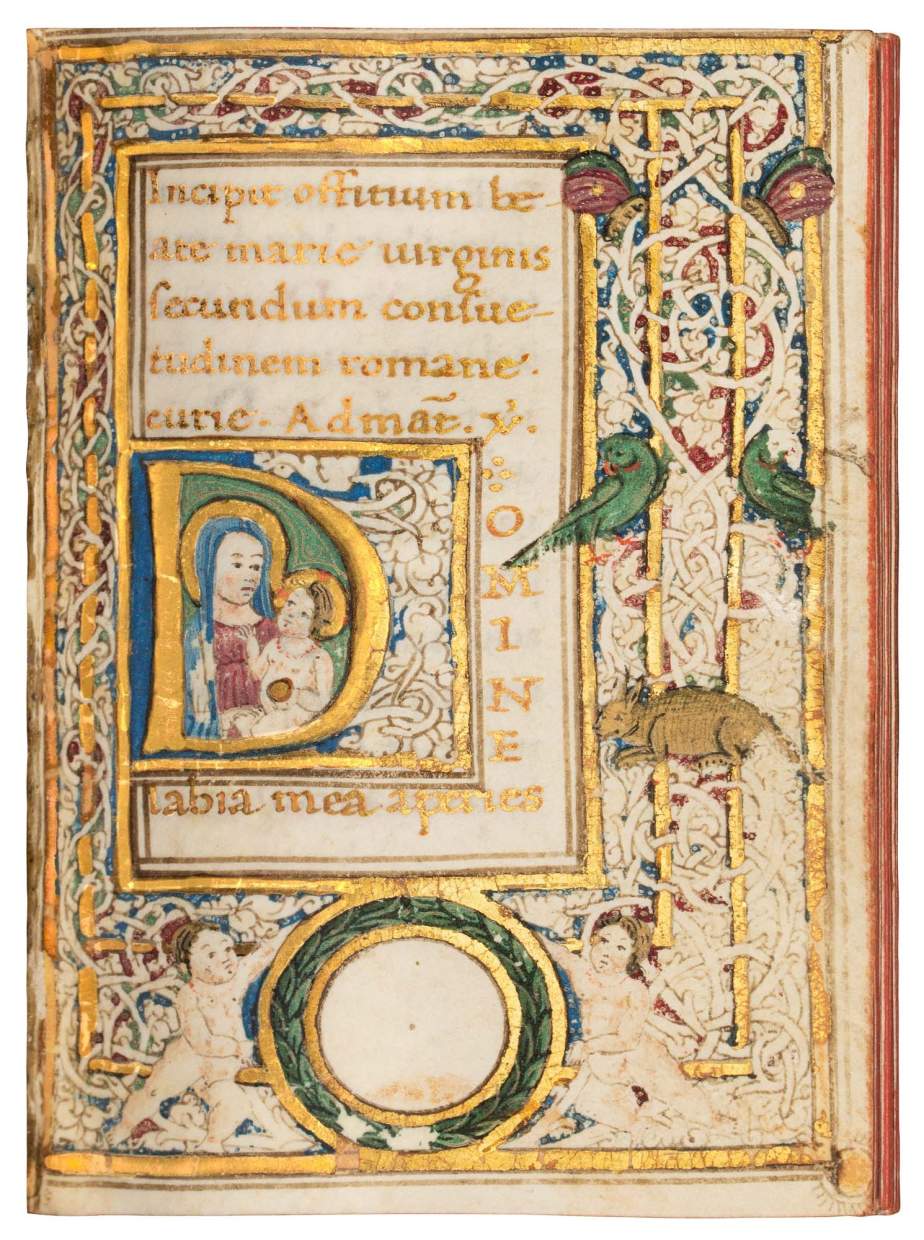 Incipit offitium be-
ate marie uirginis
secundum consue-
tudinem romane.
curie. Ad mat̄. ℣.
DOMINE
labia mea aperies